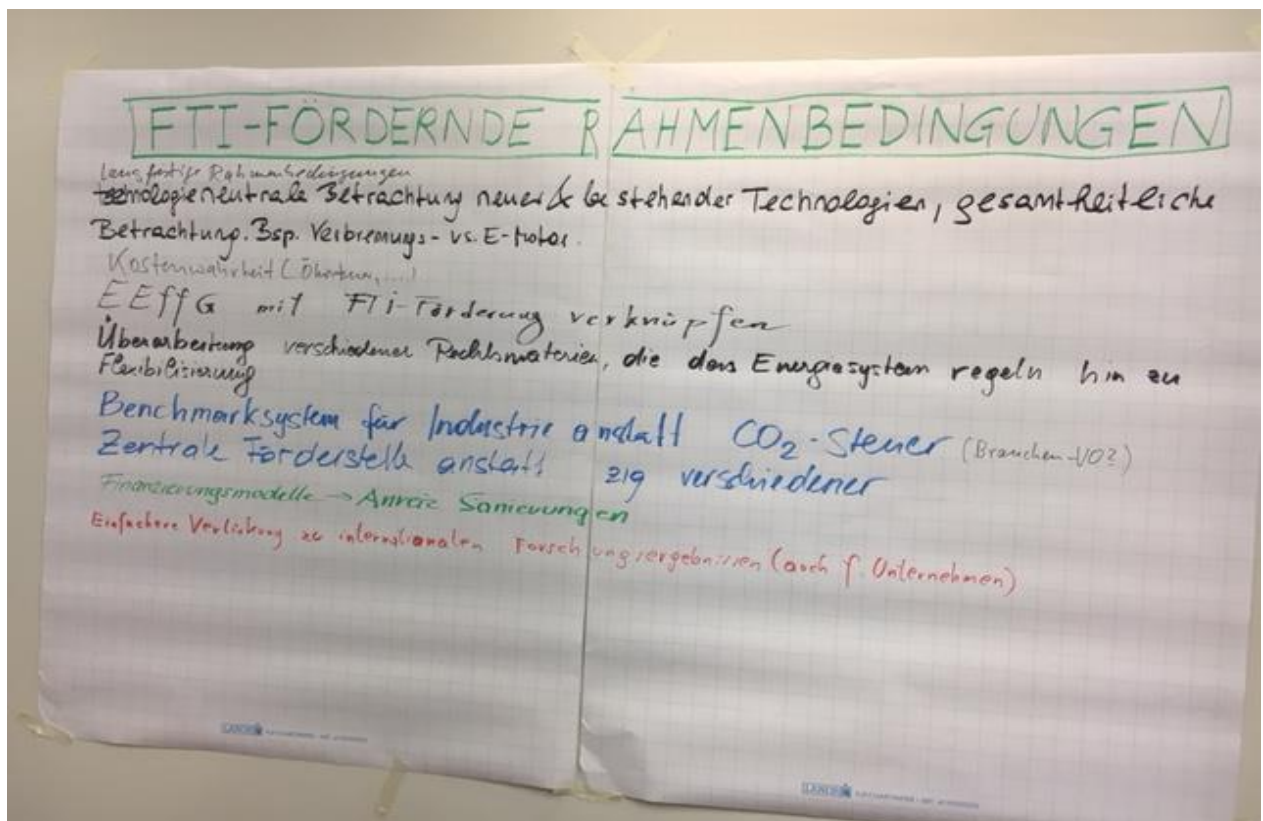 FTI-FÖRDERNDE RAHMENBEDINGUNGEN
Langfristige Rahmenbedingungen
technologieneutrale Betrachtung neuer & bestehender Technologien, gesamtheitliche
Betrachtung. Bsp. Verbrennungs- vs. E-Motor.
Kostenwahrheit (
EEffG mit FTI-Förderung verknüpfen
Überarbeitung verschiedener Rechtsmaterien, die das Energiesystem regeln hin zu
Flexibilisierung
Benchmarksystem für Industrie anstatt CO₂-Steuer (Branchen-VO?)
Zentrale Förderstelle anstatt zig verschiedener
Finanzierungsmodelle → Anreiz Sanierungen
Einfachere Verlinkung zu internationalen Forschungsergebnissen (auch f. Unternehmen)
LANDRÉ
LANDRÉ